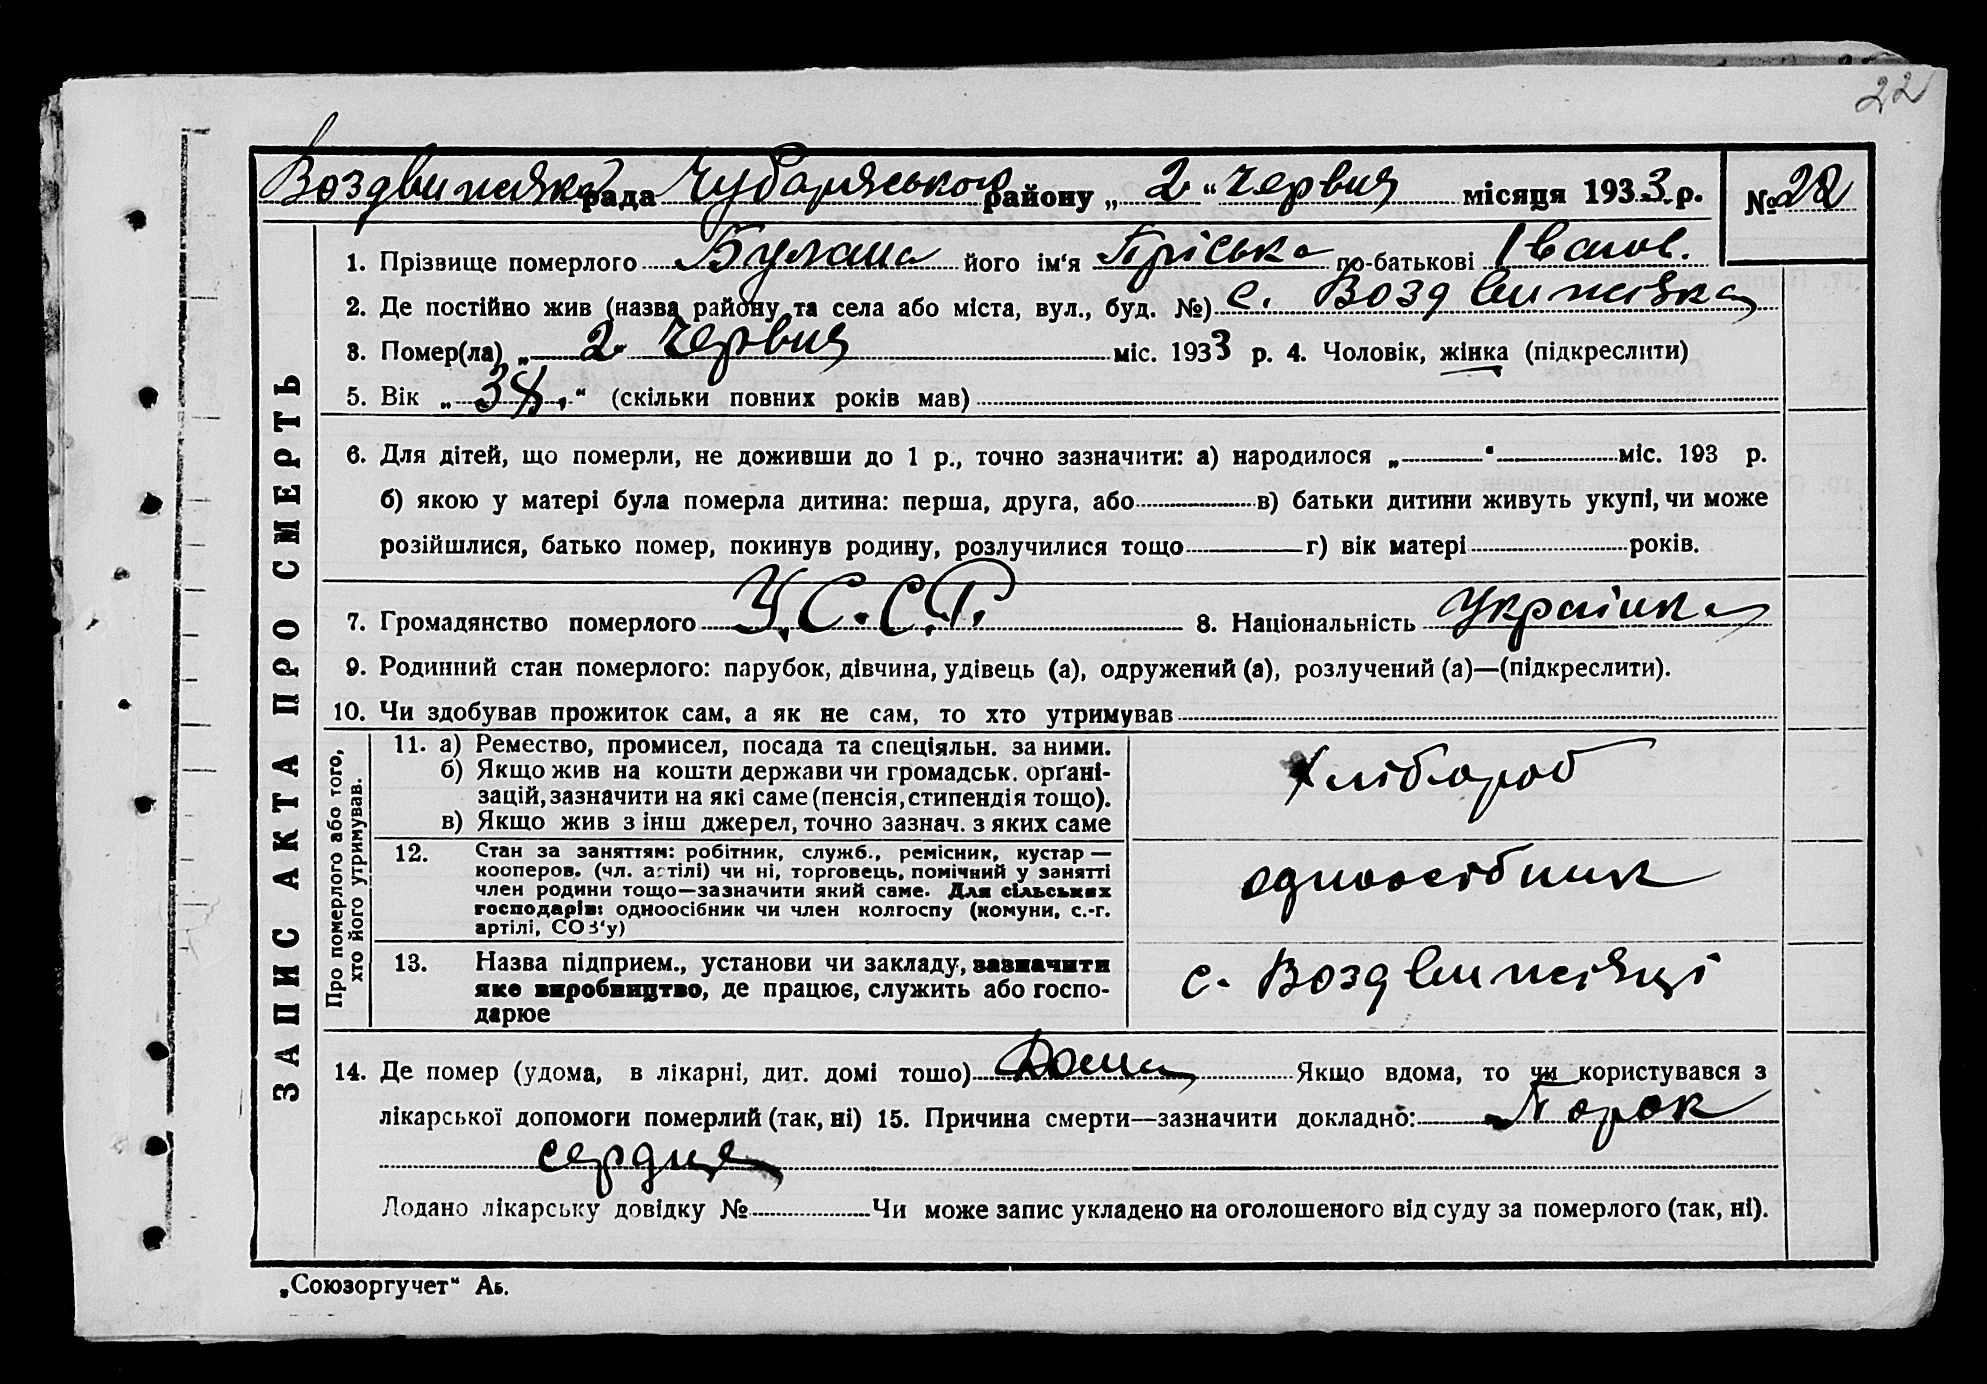 22
Воздвижівська рада Чубарівського району „ 2 “ червня місяця 1933 р. № 22
1. Прізвище померлого його ім'я Пріська по-батькові Іванов.
2. Де постійно жив (назва району та села або міста, вул., буд. №) с. Воздвижівка
3. Помер(ла) „ 2 “ червня міс. 1933 р. 4. Чоловік, жінка (підкреслити)
5. Вік „ “ (скільки повних років мав)
6. Для дітей, що померли, не доживши до 1 р., точно зазначити: а) народилося „ “ міс. 193 р.
б) якою у матері була померла дитина: перша, друга, або в) батьки дитини живуть укупі, чи може
розійшлися, батько помер, покинув родину, розлучилися тощо г) вік матері років.
7. Громадянство померлого У.С.С.Р. 8. Національність Українка
9. Родинний стан померлого: парубок, дівчина, удівець (а), одружений (а), розлучений (а)—(підкреслити).
10. Чи здобував прожиток сам, а як не сам, то хто утримував
ЗАПИС АКТА ПРО СМЕРТЬ
Про померлого або того,
хто його утримував.
11. а) Ремество, промисел, посада та спеціяльн. за ними.
б) Якщо жив на кошти держави чи громадськ. орґані-
зацій, зазначити на які саме (пенсія, стипендія тощо).
в) Якщо жив з інш джерел, точно зазнач. з яких саме
Хлібороб
12. Стан за заняттям: робітник, служб., ремісник, кустар —
кооперов. (чл. артілі) чи ні, торговець, помічний у занятті
член родини тощо—зазначити який саме. Для сільських
господарів: одноосібник чи член колгоспу (комуни, с.-г.
артілі, СОЗ'у)
одноосібник
13. Назва підприєм., установи чи закладу, зазначити
яке виробництво, де працює, служить або госпо-
дарює
с. Воздвижівці
14. Де помер (удома, в лікарні, дит. домі тощо) Дома Якщо вдома, то чи користувався з
лікарської допомоги померлий (так, ні) 15. Причина смерти—зазначити докладно: Порок
сердце
Додано лікарську довідку № Чи може запис укладено на оголошеного від суду за померлого (так, ні).
„Союзоргучет“ Аь.